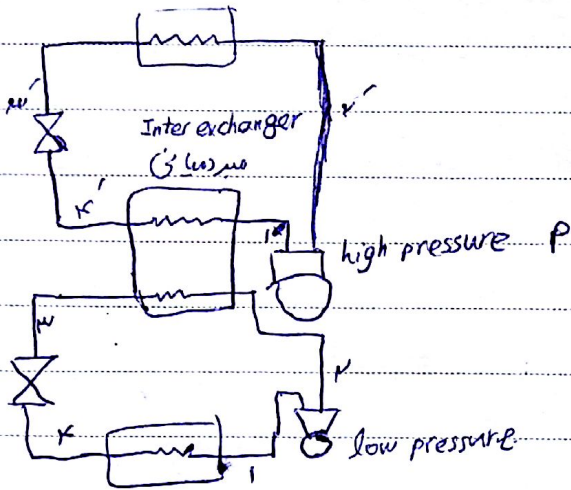 ۳′
۲′
Inter exchanger
مبرد میانی
۴′
۱′
high pressure P
۳
۲
۴
۱
low pressure